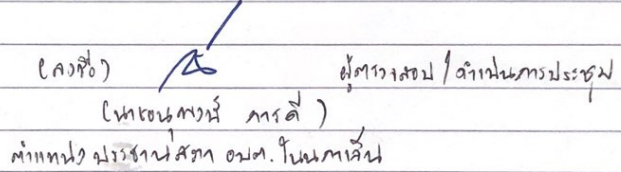 (ลงชื่อ) ผู้ตรวจสอบ / ดำเนินการประชุม
(นายอนุพงษ์ การดี)
ตำแหน่ง ประธานสภา อบต. โนนกาเส็น